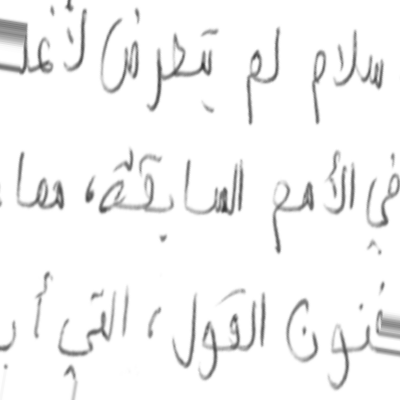 سلام لم يتعرض لأغلا
في الأمم السابقة، مما
فنون القول، التي أ